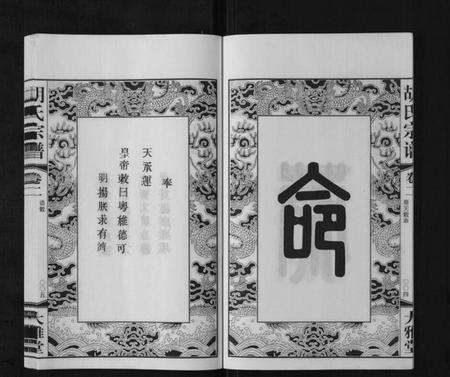 胡氏宗譜
卷二
大雅堂
命
奉
天承運
皇帝敕曰粵維德可
明揚朕求有濟
胡氏宗譜
卷二
大雅堂